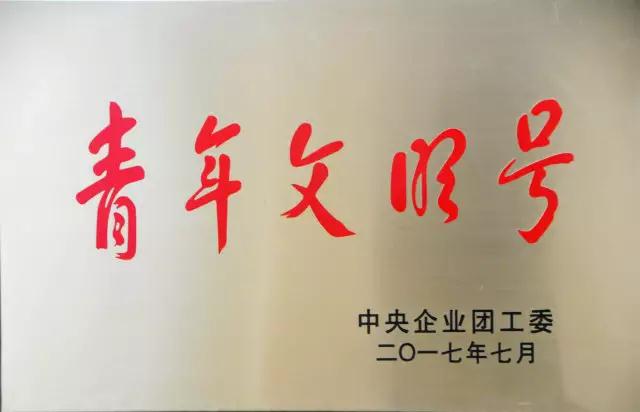 青年文明号
中央企业团工委
二〇一七年七月